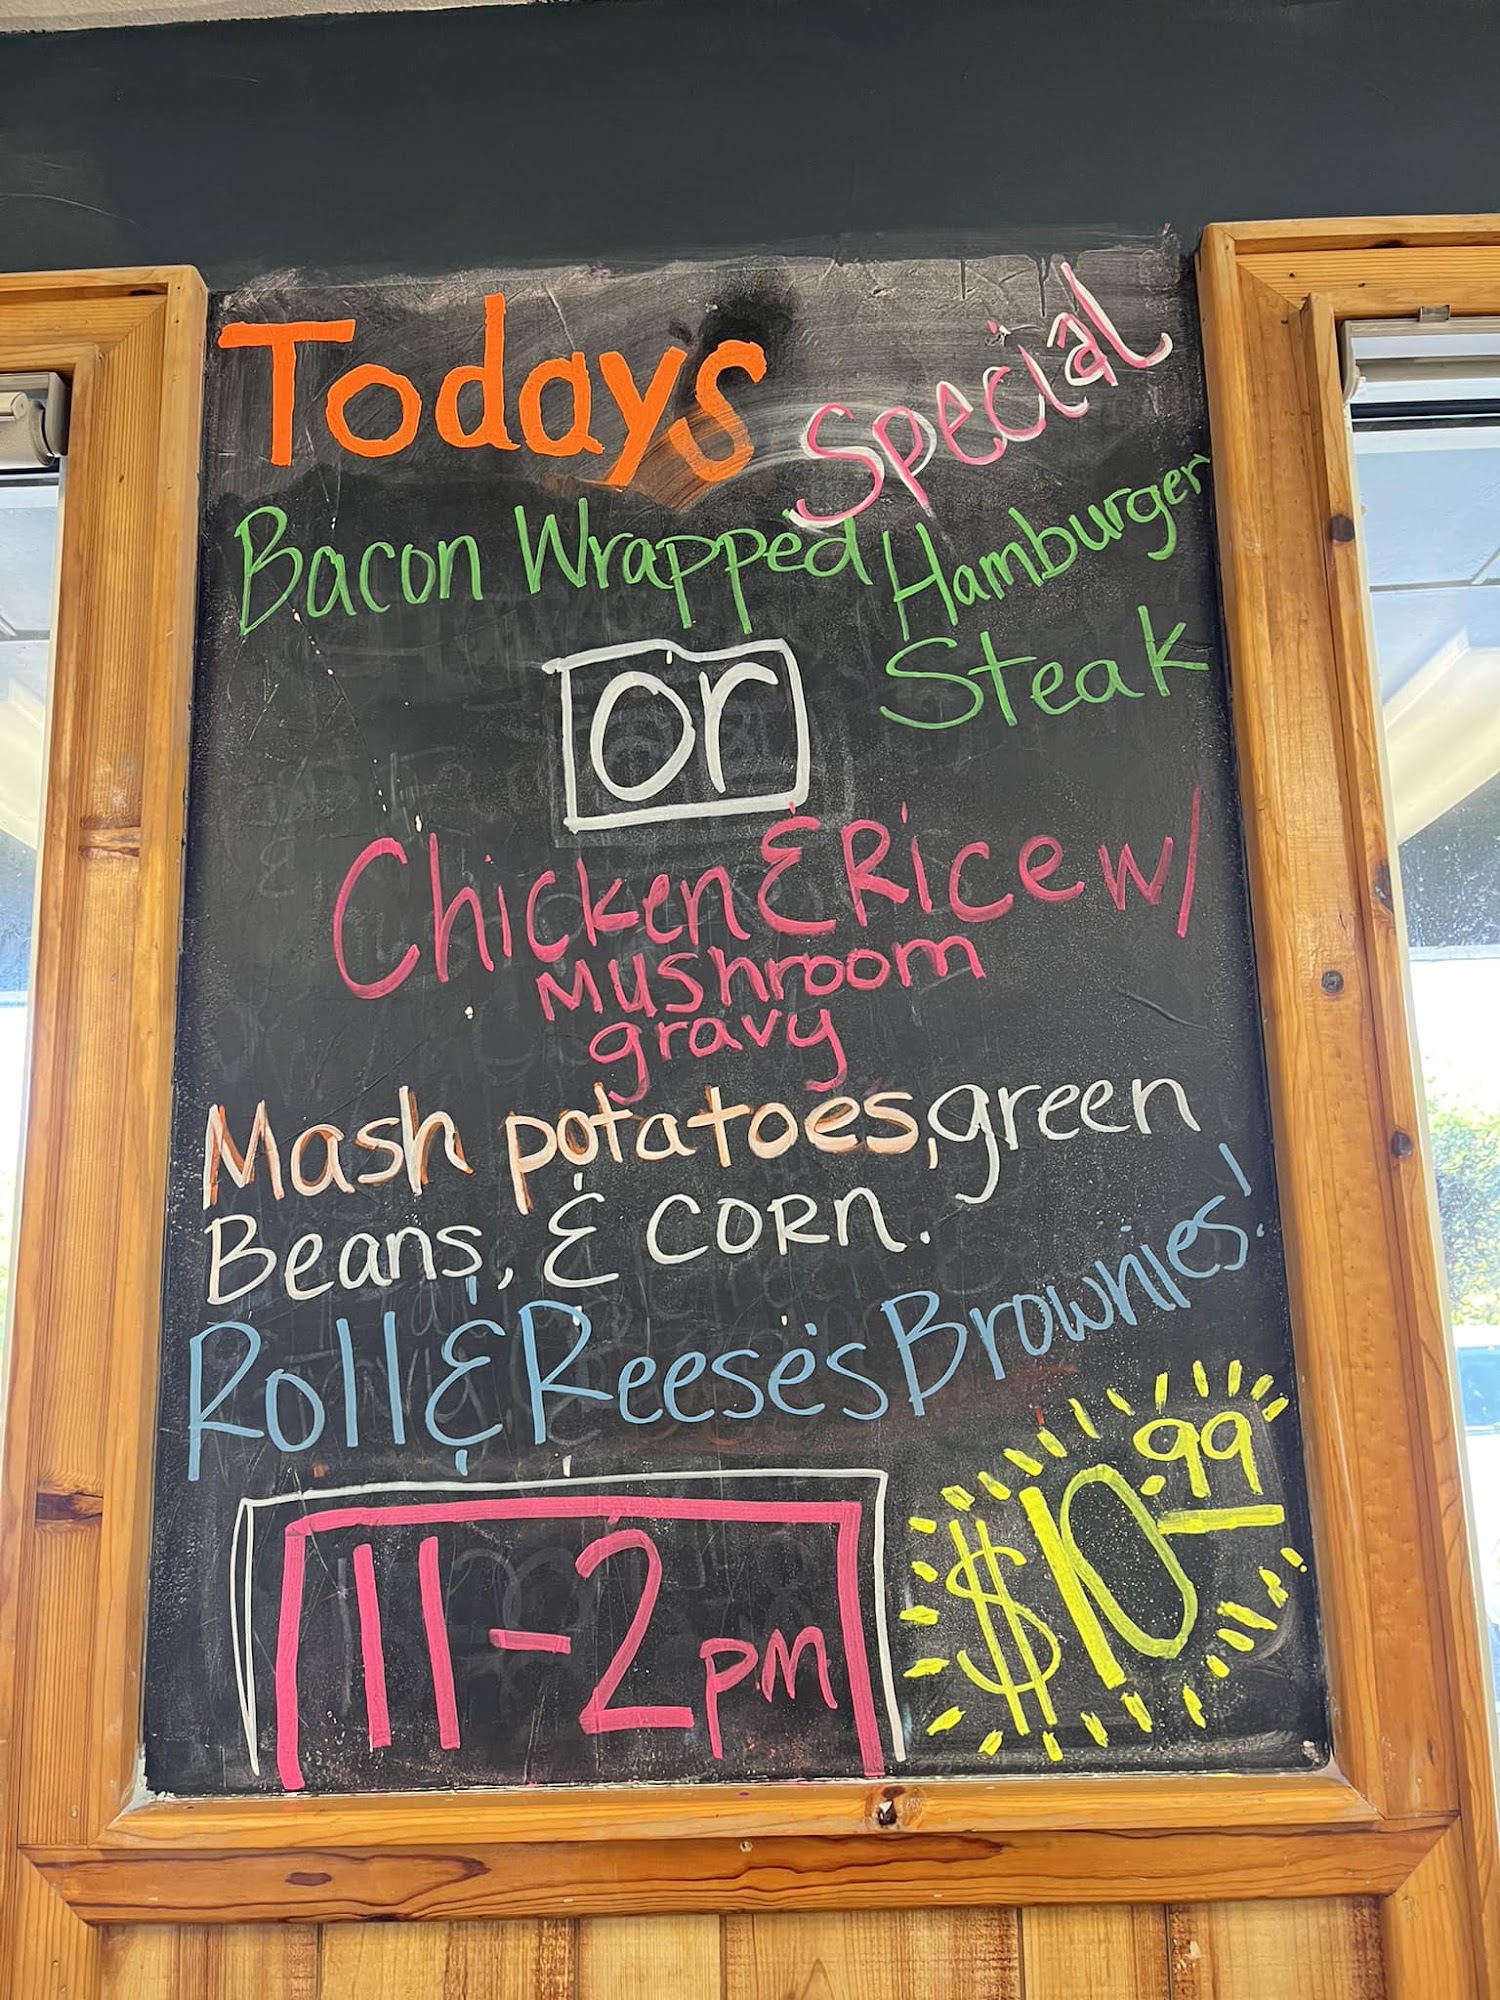 Todays Special
Bacon Wrapped Hamburger
Steak
or
Chicken & Rice w/
Mushroom
gravy
Mash potatoes, green
Beans, & CORN.
Roll & Reese's Brownies!
11-2 p.m
$10.99